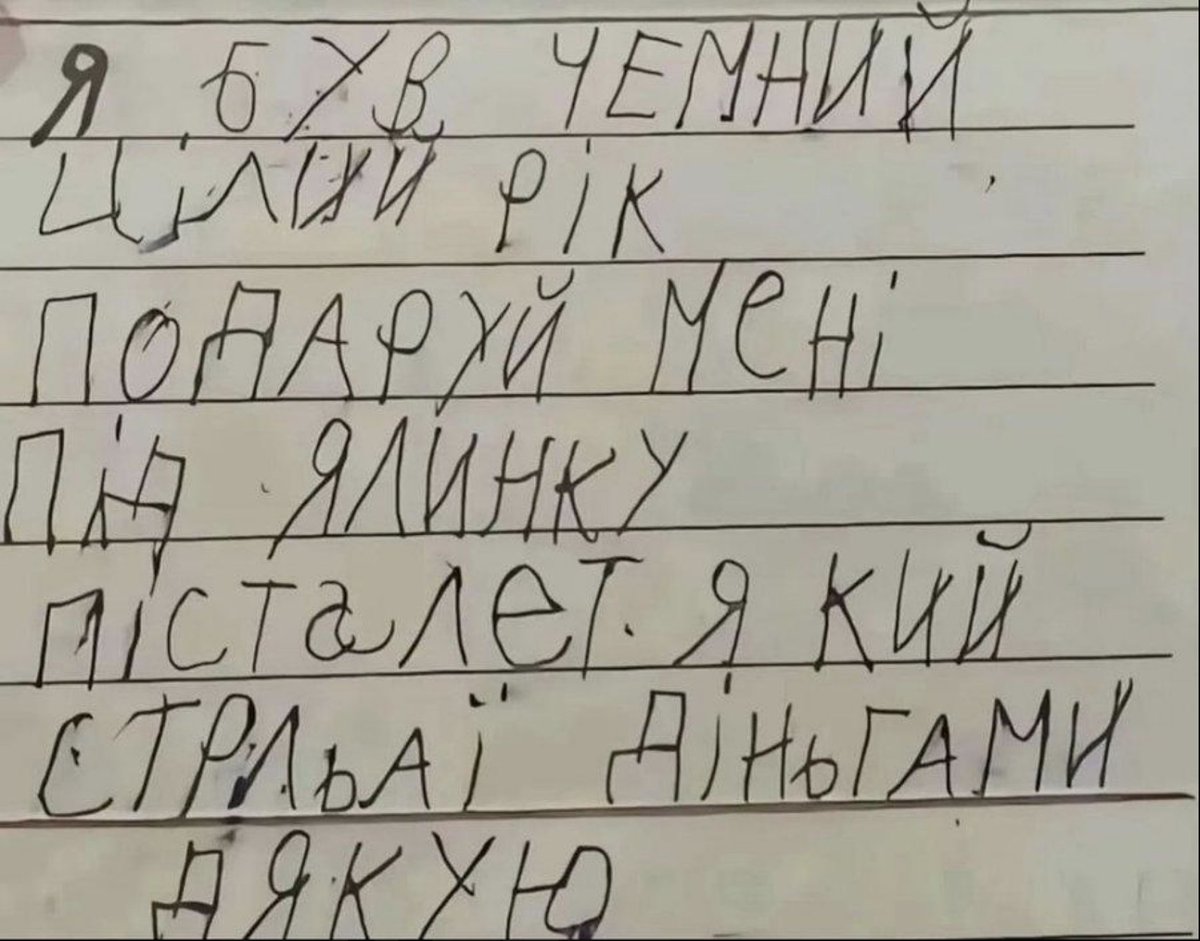 Я БУВ ЧЕМНИЙ
ЦІЛИЙ РІК
ПОДАРУЙ МЕНІ
ПІД ЯЛИНКУ
ПІСТАЛЕТ ЯКИЙ
СТРЛЬАЇ ДІНЬГАМИ
ДЯКУЮ